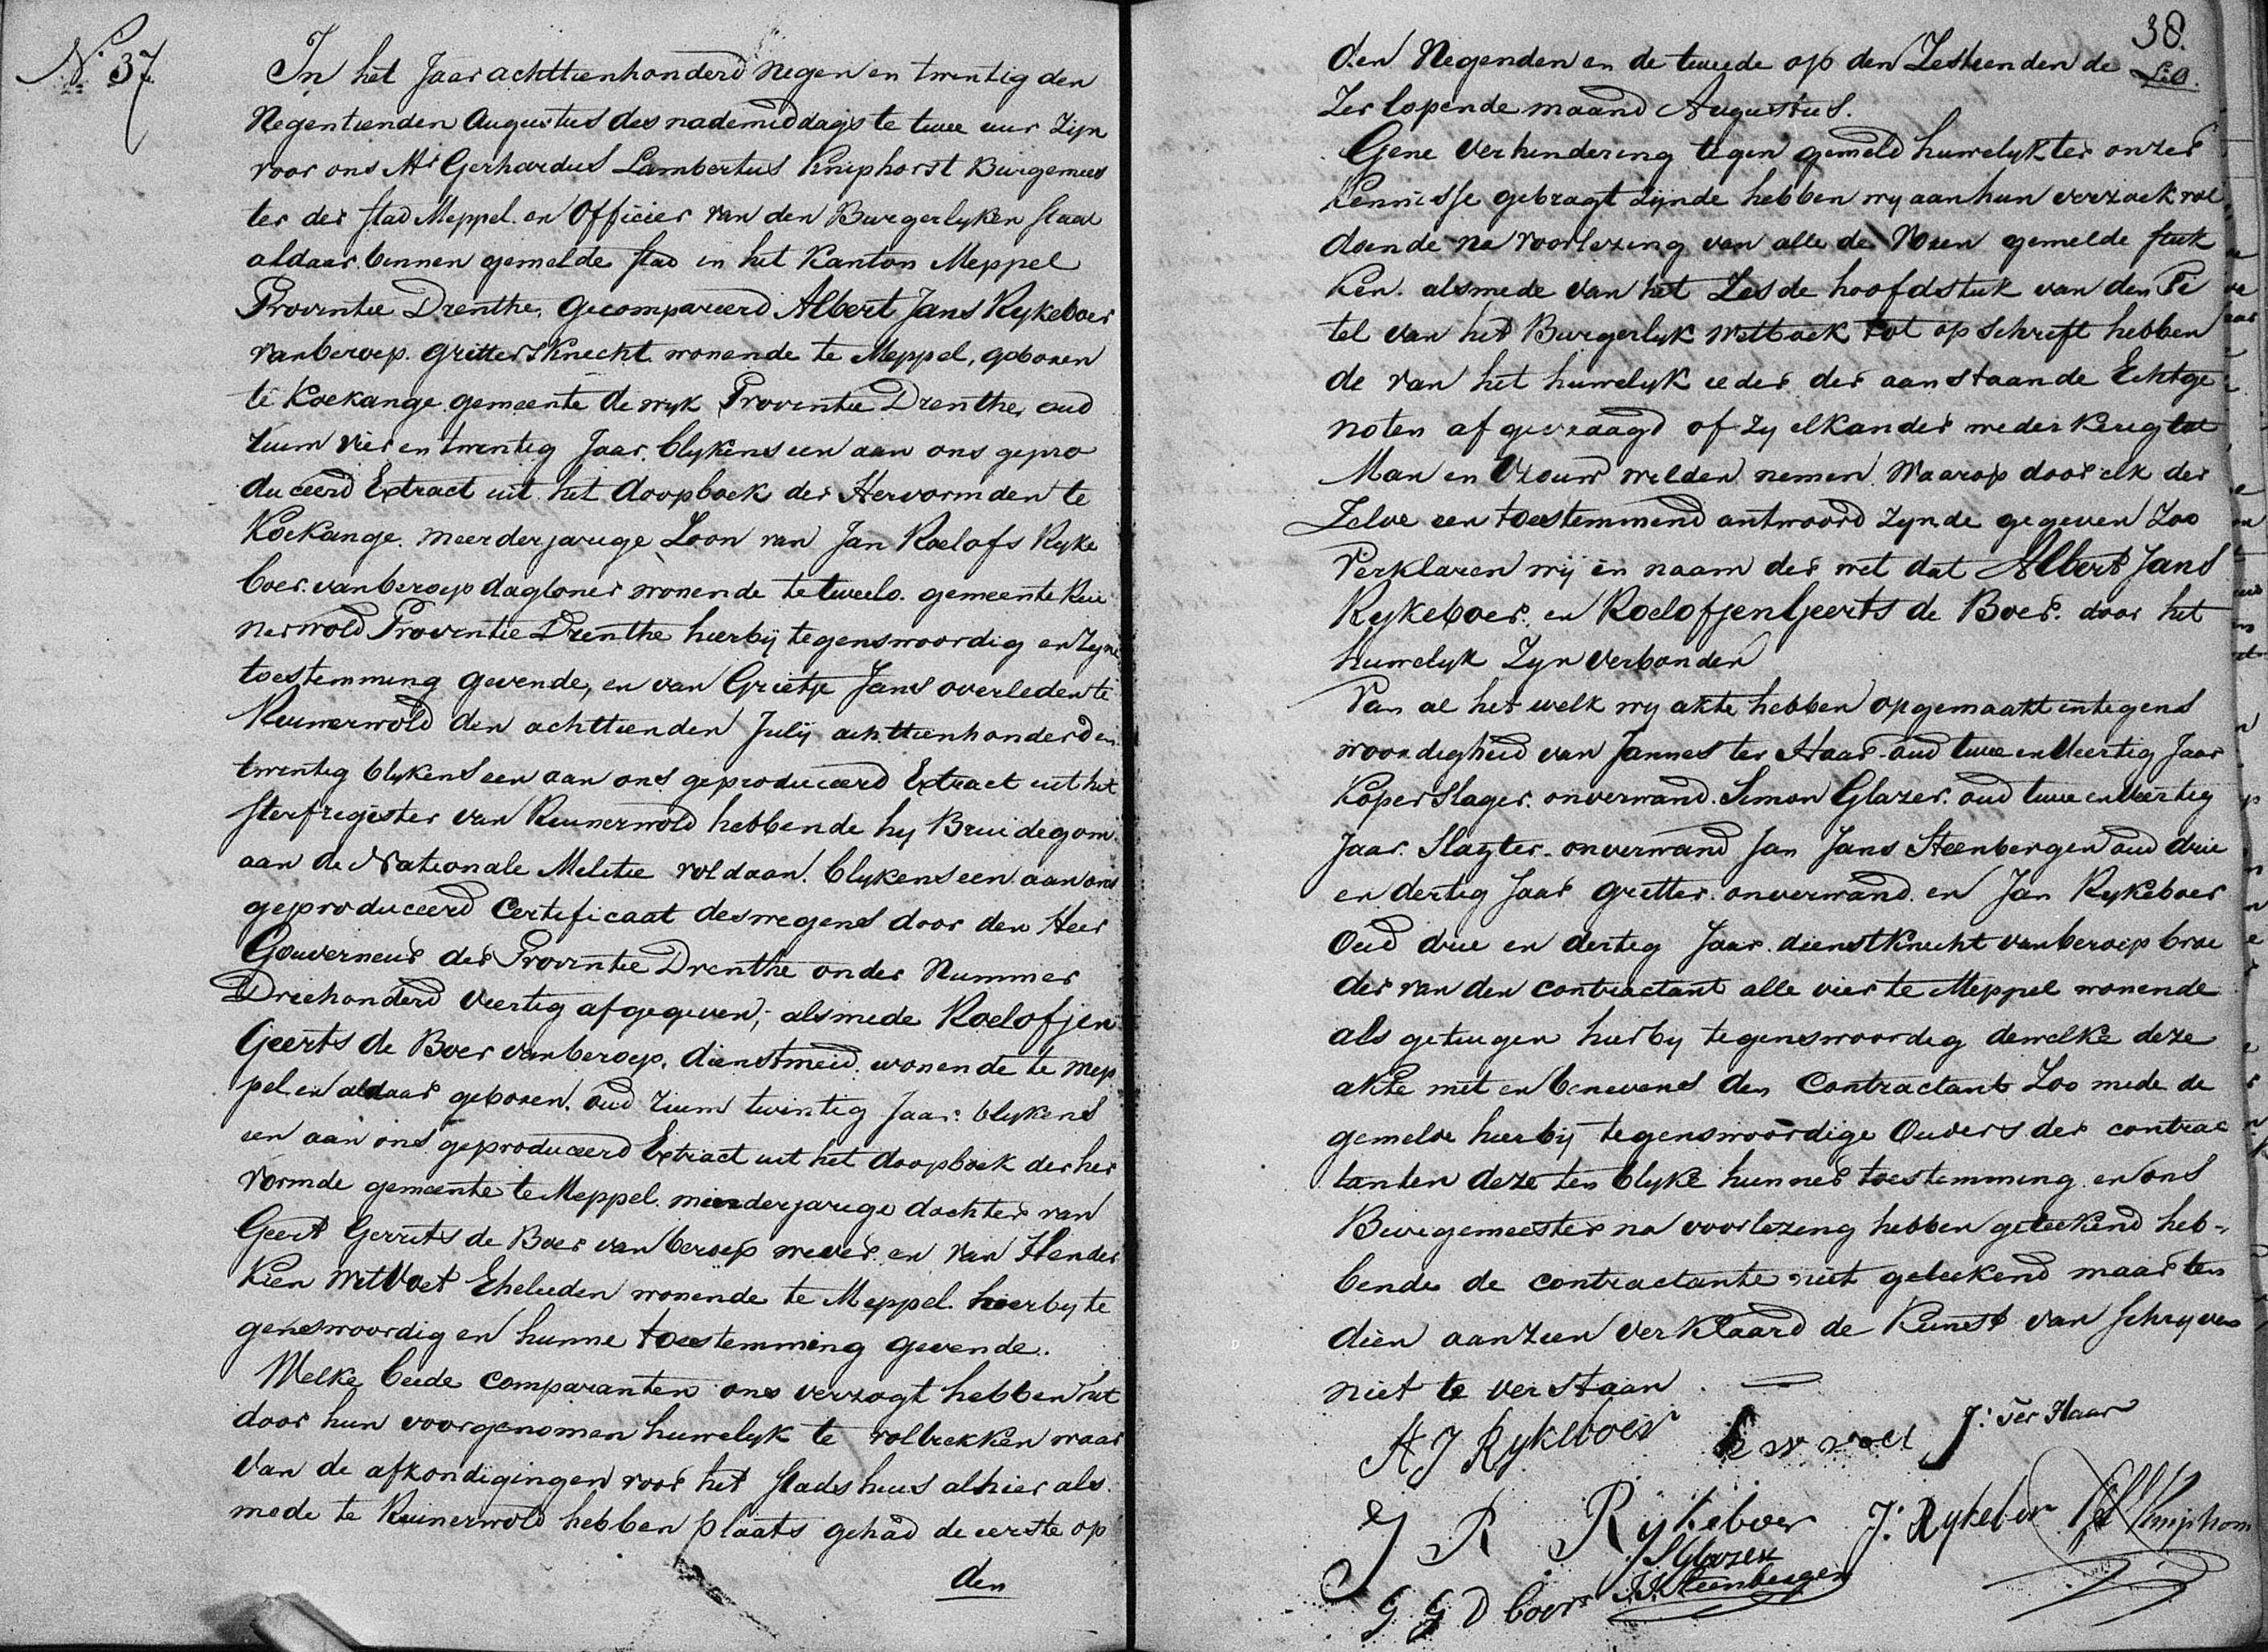 No. 37.
In het Jaar achttienhonderd Negen en twentig den
Negentienden Augustus des nademiddags te twee uur Zijn
voor ons Mr Gerhardus Lambertus Kniphorst Burgemees
ter der stad Meppel en Officier van den Burgerlyken staat
aldaar binnen gemelde stad in het Kanton Meppel
Provintie Drenthe, Gecompareerd Albert Jans Rykeboer
van beroep gritters Knecht wonende te Meppel, geboren
te Koekange gemeente de wyk Provintie Drenthe, oud
ruim vier en twentig Jaar, blykens een aan ons gepro
duceerd Extract uit het doopboek der Hervormden te
Koekange. meerderjarige Zoon van Jan Roelofs Ryke
boer. van beroep dagloner wonende te tweelo gemeente Rui
nerwold Provintie Drenthe hierbij tegenswoordig en Zyne
toestemming gevende, en van Grietje Jans overleden te
Ruinerwold den achttienden Julij achttienhonderd en
twentig blykens een aan ons geproduceerd Extract uit het
sterfregister van Ruinerwold hebbende hy Bruidegom
aan de Nationale Melitie voldaan. blykens een aan ons
geproduceerd Certificaat deswegens door den Heer
Gouverneur der Provintie Drenthe onder Nummer
Driehonderd veertig afgegeven; alsmede Roelofjen
Geerts de Boer van beroep, dienstmeid. wonende te Mep
pel en aldaar geboren. oud ruim twintig Jaar: blykens
een aan ons geproduceerd Extract uit het doopboek der her
vormde gemeente te Meppel. minderjarige dochter van
Geert Gerrits de Boer van beroep wever. en van Hender
kien Witvoet Eheleden wonende te Meppel. hierby te
genswoordig en hunne toestemming gevende.
Welke beide comparanten ons verzogt hebben het
door hun voorgenomen huwelyk te voltrekken waar
van de afkondigingen voor het stadshuis alhier als
mede te Ruinerwold hebben plaats gehad de eerste op
den
38.
den Negenden en de tweede op den Zestienden de
Zer lopende maand Augustus.
Gene verhindering tegen gemeld huwelyk ter onzer
Kennisse gebragt zijnde hebben wy aan hun verzoek vol
doende na voorlezing van alle de voren gemelde stuk
ken. alsmede van het Zesde hoofdstuk van den Ti
tel van het Burgerlyk Wetboek tot opschrift hebben
de van het huwelyk ieder der aanstaande Echtge
noten afgevraagd of zy elkander wederkerig tot
Man en Vrouw wilden nemen Waarop door elk der
Zelve een toestemmend antwoord zynde gegeven Zoo
Verklaren wij in naam der wet dat Albert Jans
Rykeboer. en Roelofjen Geerts de Boer. door het
huwelyk Zyn verbonden
Van al het welk wy akte hebben opgemaakt in tegens
woordigheid van Jannes ter Haar oud twee en veertig Jaar
Koperslager. onverwand. Simon Glazer. oud twee en veertig
Jaar. Slagter. onverwand Jan Jans Steenbergen oud drie
en dertig Jaar gritter. onverwand. en Jan Rykeboer
Oud drie en dertig Jaar dienstknecht van beroep broe
der van den contractant alle vier te Meppel wonende
als getuigen hierby tegenswoordig dewelke deze
akte met en benevens den Contractant Zoo mede de
gemelde hierbij tegenswoordige Ouders der contrac
tanten deze ten blyke hunner toestemming en ons
Burgemeester na voorlezing hebben geteekend heb-
bende de contractante niet geteekend maar ten
dien aanzien verklaard de Kunst van schryven
niet te verstaan.
A J Rykeboer H W voet J: Ter Haar
J R Rijkeboer J: Rykeboer Kniphorst
S Glazer
J.J. Steenbergen
G G D boer